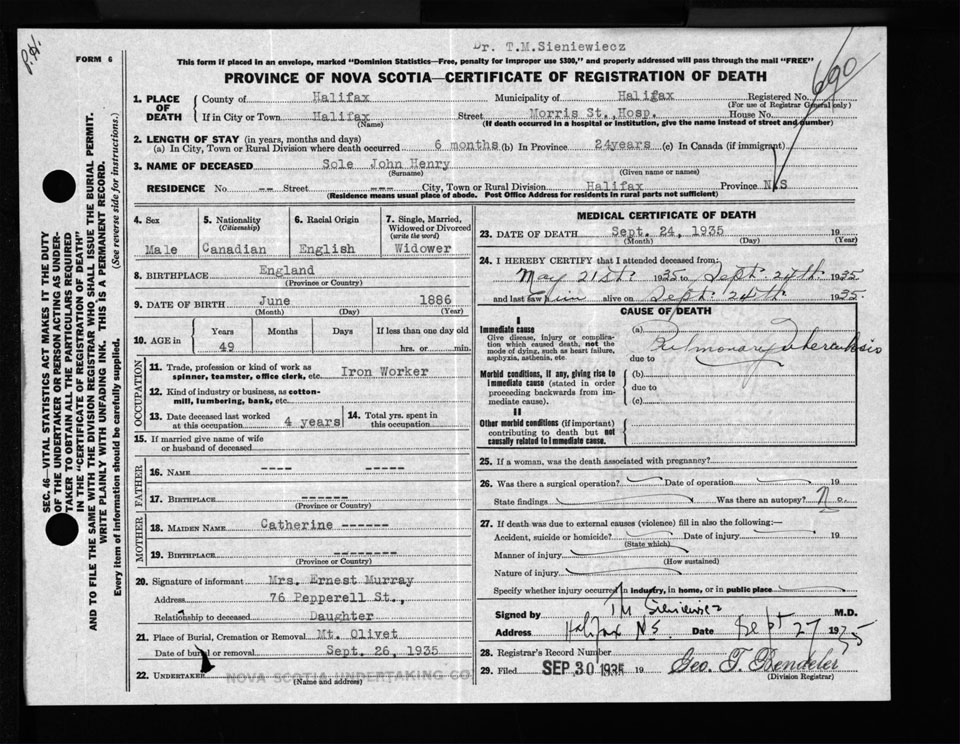 P.H.
Dr. T.M.Sieniewiecz
FORM 6
This form if placed in an envelope, marked "Dominion Statistics—Free, penalty for improper use $300," and properly addressed will pass through the mail "FREE"
PROVINCE OF NOVA SCOTIA—CERTIFICATE OF REGISTRATION OF DEATH
690
1. PLACE OF DEATH
County of Halifax Municipality of Halifax Registered No.
(For use of Registrar General only)
If in City or Town Halifax Street Morris St., Hosp. House No.
(Name) (If death occurred in a hospital or institution, give the name instead of street and number)
2. LENGTH OF STAY (in years, months and days)
(a) In City, Town or Rural Division where death occurred 6 months (b) In Province 24years (c) In Canada (if immigrant)
3. NAME OF DECEASED Sole John Henry
(Surname) (Given name or names)
RESIDENCE No -- Street --- City, Town or Rural Division Halifax Province N.S
(Residence means usual place of abode. Post Office Address for residents in rural parts not sufficient)
SEC. 46—VITAL STATISTICS ACT MAKES IT THE DUTY
OF THE UNDERTAKER OR PERSON ACTING AS UNDER-
TAKER TO OBTAIN ALL THE PARTICULARS REQUIRED
IN THE "CERTIFICATE OF REGISTRATION OF DEATH"
AND TO FILE THE SAME WITH THE DIVISION REGISTRAR WHO SHALL ISSUE THE BURIAL PERMIT.
WRITE PLAINLY WITH UNFADING INK. THIS IS A PERMANENT RECORD.
Every item of information should be carefully supplied. (See reverse side for instructions.)
4. Sex
Male
5. Nationality
(Citizenship)
Canadian
6. Racial Origin
English
7. Single, Married,
Widowed or Divorced
(write the word)
Widower
8. BIRTHPLACE England
(Province or Country)
9. DATE OF BIRTH June 1886
(Month) (Day) (Year)
10. AGE in
Years Months Days If less than one day old
49 hrs. or min.
OCCUPATION
11. Trade, profession or kind of work as
spinner, teamster, office clerk, etc. Iron Worker
12. Kind of industry or business, as cotton-
mill, lumbering, bank, etc.
13. Date deceased last worked
at this occupation 4 years
14. Total yrs. spent in
this occupation
15. If married give name of wife
or husband of deceased
FATHER
16. NAME ---- -----
17. BIRTHPLACE ------
(Province or Country)
MOTHER
18. MAIDEN NAME Catherine ------
19. BIRTHPLACE --------
(Province or Country)
20. Signature of informant Mrs. Ernest Murray
Address 76 Pepperell St.,
Relationship to deceased Daughter
21. Place of Burial, Cremation or Removal Mt. Olivet
Date of burial or removal Sept. 26, 1935
22. UNDERTAKER NOVA SCOTIA UNDERTAKING CO
(Name and address)
MEDICAL CERTIFICATE OF DEATH
23. DATE OF DEATH Sept. 24, 1935 19
(Month) (Day) (Year)
24. I HEREBY CERTIFY that I attended deceased from
May 21st. 1935 to Sept. 24th. 1935
and last saw him alive on Sept. 24th 1935.
CAUSE OF DEATH
I
Immediate cause
Give disease, injury or complica-
tion which caused death, not the
mode of dying, such as heart failure,
asphyxia, asthenia, etc.
(a) Pulmonary Tuberculosis
due to
Morbid conditions, if any, giving rise to
immediate cause (stated in order
proceeding backwards from im-
mediate cause).
(b)
due to
(c)
II
Other morbid conditions (if important)
contributing to death but not
causally related to immediate cause.
25. If a woman, was the death associated with pregnancy?
26. Was there a surgical operation? Date of operation 19
State findings Was there an autopsy? No.
27. If death was due to external causes (violence) fill in also the following:—
Accident, suicide or homicide? Date of injury 19
(State which)
Manner of injury
(How sustained)
Nature of injury
Specify whether injury occurred in industry, in home, or in public place
Signed by T M Sieniewicz M.D.
Address Halifax N.S. Date Sept 27 1935
28. Registrar's Record Number
29. Filed SEP 30 1935 19 Geo. T. Bendelei
(Division Registrar)